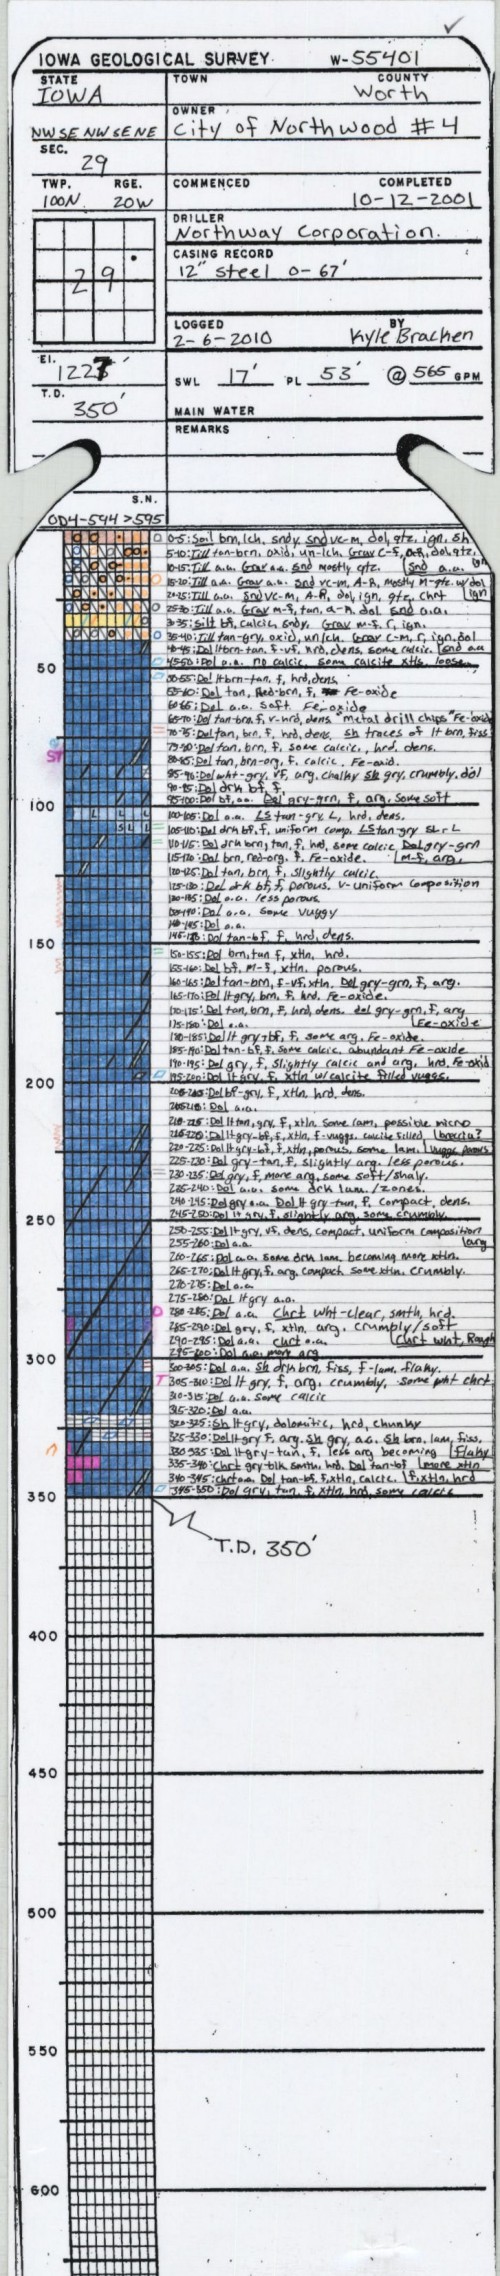 IOWA GEOLOGICAL SURVEY W-55401
STATE TOWN COUNTY
IOWA Worth
OWNER
NW SE NW SE NE City of Northwood #4
SEC.
29
TWP. RGE. COMMENCED COMPLETED
100N 20W 10-12-2001
DRILLER
Northway Corporation.
CASING RECORD
29 12" steel 0-67'
LOGGED BY
2-6-2010 Kyle Bracken
El. 1227'
SWL 17' PL 53' @ 565 GPM
T.D. 350'
MAIN WATER
REMARKS
S.N.
OD4-594>595
0-5: Soil brn, lch, sndy. snd vc-m, dol, qtz, ign, sh
5-10: Till tan-brn, oxid, un-lch. Grav C-f, A-R, dol, qtz, ign
10-15: Till a.a. Grav a.a. Snd mostly qtz. Snd a.a.
15-20: Till a.a. Grav a.a. Snd vc-m, A-R, mostly M-qtz w/dol
20-25: Till a.a. Snd vc-m, A-R, dol, ign, qtz, chrt ign
25-30: Till a.a. Grav m-f, tan, a-R, dol snd a.a.
30-35: silt bf, calcic, sndy, Grav m-f, r, ign.
35-40: Till tan-gry, oxid, un/ch. Grav c-m, r, ign, dol
40-45: Dol lt brn-tan, f-vf, hrd, dens, some calcic. snd a.a
50 45-50: Dol a.a. no calcic, some calcite xtls, loose.
50-55: Dol lt brn-tan, f, hrd, dens
55-60: Dol tan, Red-brn, f, Fe-oxide
60-65: Dol a.a. soft. Fe-oxide
65-70: Dol tan-brn, f, v-hrd, dens "metal drill chips" Fe-oxide
70-75: Dol tan, brn, f, hrd, dens. Sh traces of lt brn, fiss
75-80: Dol tan, brn, f, some calcic, hrd, dens.
ST 80-85: Dol tan, brn-org, f, calcic. Fe-oxid.
85-90: Dol wht-gry, vf, arg, chalky sh gry, crumbly, dol
90-95: Dol drk bf, f
100 95-100: Dol bf, a.a. Dol gry-grn, f, arg, some soft
L L L 100-105: Dol a.a. LS tan-gry L, hrd, dens.
SL L 105-110: Dol drk bf, f, uniform comp. LS tan-gry SL-L
110-115: Dol drk brn, tan, f, hrd, some calcic Dol gry-grn
115-120: Dol brn, red-org, f, Fe-oxide. m-f, arg,
120-125: Dol tan, brn, f, slightly calcic.
125-130: Dol drk bf, f, porous. v-uniform composition
130-135: Dol a.a. less porous
135-140: Dol a.a. some vuggy
140-145: Dol a.a.
150 145-150: Dol tan-bf, f, hrd, dens.
150-155: Dol brn, tan, f, xtln, hrd.
155-160: Dol bf, m-f, xtln, porous.
160-165: Dol tan-brn, f-vf, xtln, Dol gry-grn, f, arg.
165-170: Dol lt gry, brn, f, hrd, Fe-oxide.
170-175: Dol tan, brn, f, hrd, dens. dol gry-grn, f, arg
175-180: Dol a.a. Fe-oxide
180-185: Dol lt gry-bf, f, some arg. Fe-oxide.
185-190: Dol tan-bf, f, some calcic, abundant Fe-oxide
190-195: Dol gry, f, slightly calcic and arg, hrd, Fe-oxid
200 195-200: Dol lt gry, f, xtln w/calcite filled vuggs.
200-205: Dol bf-gry, f, xtln, hrd, dens.
205-210: Dol a.a.
210-215: Dol lt tan, gry, f, xtln, some lam, possible micro
215-220: Dol lt gry-bf, f, xtln, f-vuggs, calcite filled, breccia?
220-225: Dol lt gry-bf, f, xtln, porous, some lam, vuggs, porous
225-230: Dol gry-tan, f, slightly arg. less porous.
230-235: Dol gry, f, more arg, some soft/shaly.
235-240: Dol a.a. some drk lam./zones.
240-245: Dol gry a.a. Dol lt gry-tan, f, compact, dens.
250 245-250: Dol lt gry, f, slightly arg, some crumbly.
250-255: Dol lt gry, vf, dens, compact, uniform composition
255-260: Dol a.a. arg
260-265: Dol a.a. some drk lam, becoming more xtln.
265-270: Dol lt gry, f, arg, compact some xtln, crumbly.
270-275: Dol a.a.
275-280: Dol lt gry a.a.
280-285: Dol a.a. Chrt wht-clear, smth, hrd.
285-290: Dol gry, f, xtln, arg, crumbly/soft
290-295: Dol a.a. chrt a.a. Chrt wht, Rough
300 295-300: Dol a.a. more arg
300-305: Dol a.a. Sh drk brn, fiss, f-lam, flaky.
T 305-310: Dol lt gry, f, arg, crumbly, some wht chrt
310-315: Dol a.a. some calcic
315-320: Dol a.a.
320-325: Sh lt gry, dolomitic, hrd, chunky
325-330: Dol lt gry f, arg. Sh gry, a.a. Sh brn, lam, fiss,
330-335: Dol lt gry-tan, f, less arg becoming flaky
335-340: Chrt gry-blk smth, hrd. Dol tan-bf more xtln
340-345: chrt a.a. Dol tan-bf, f, xtln, calcic. f, xtln, hrd
350 345-350: Dol gry, tan, f, xtln, hrd, some calcic
T.D. 350'
400
450
500
550
600